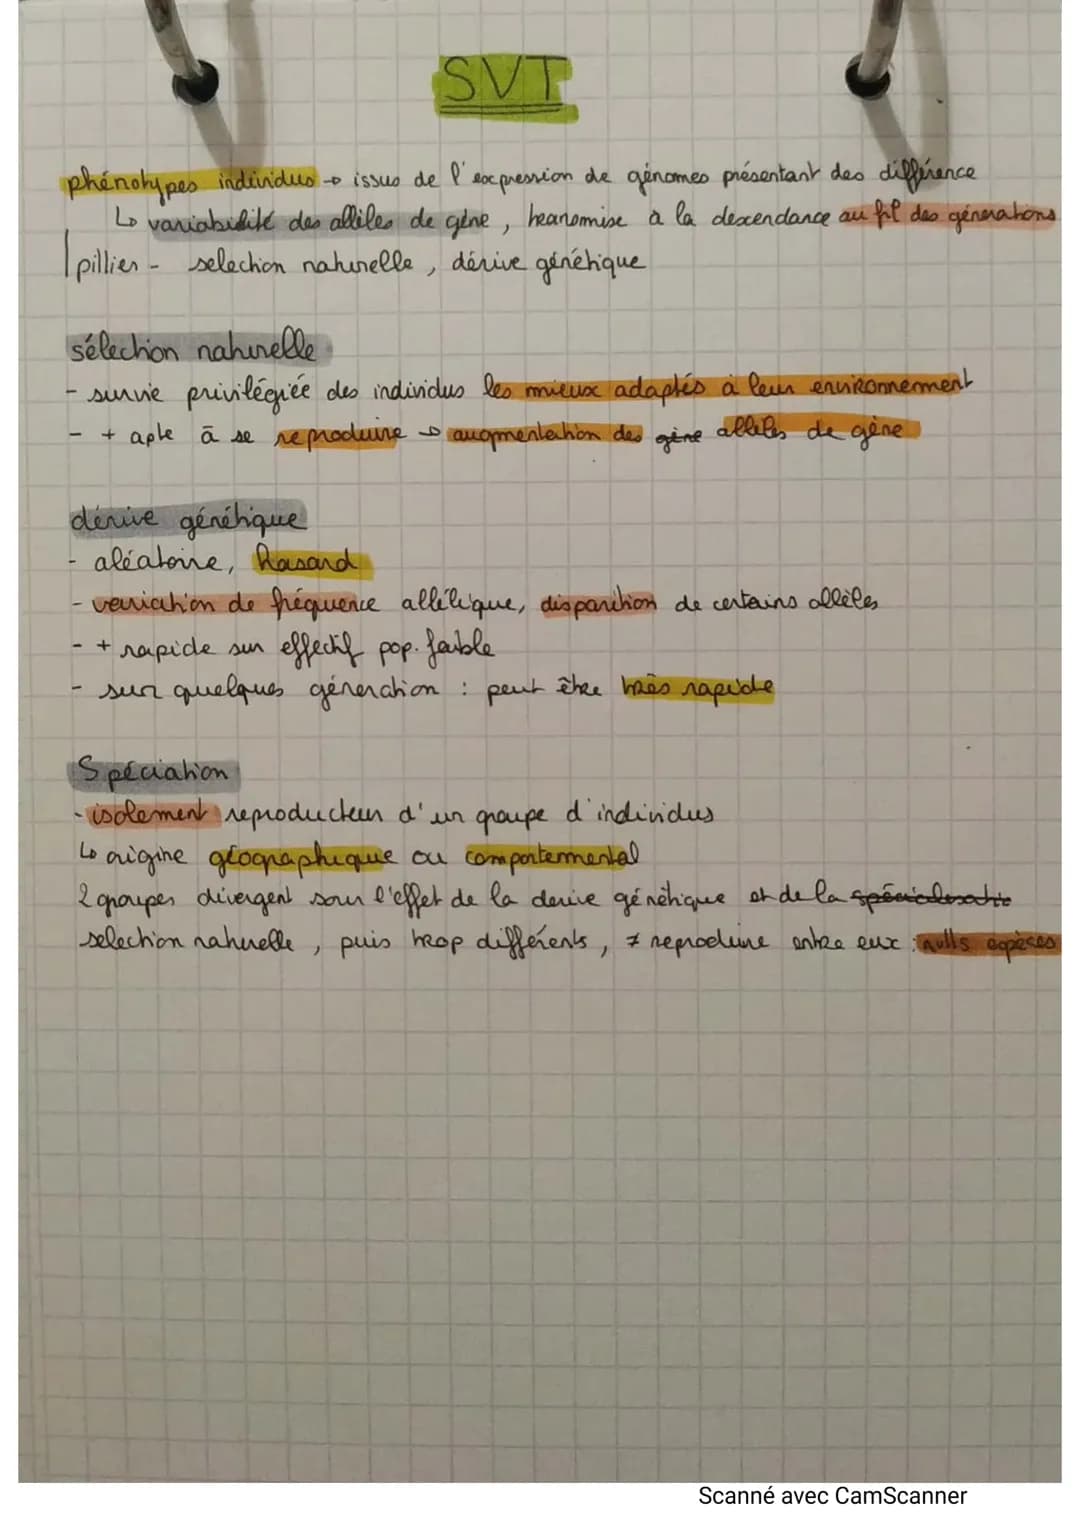 SVT
phénotypes individus → issus de l'expression de génomes présentant des différence
↳ variabilité des allèles de gène, transmise à la descendance au fil des générations
pillier - selection naturelle, dérive génétique
sélection naturelle
- survie privilégiée des individus les mieux adaptés à leur environnement
- + apte à se reproduire → augmentation des gène allèles de gène
dérive génétique
- aléatoire, hasard
- variation de fréquence allélique, disparition de certains allèles
- + rapide sur effectif pop. faible
- sur quelques géneration : peut être très rapide
Spéciation
- isolement reproducteur d'un groupe d'individus
↳ origine géographique ou comportermental
2 groupes divergent sous l'effet de la derive génétique et de la
selection naturelle, puis trop différents, ≠ reproduire entre eux : espèces
Scanné avec CamScanner